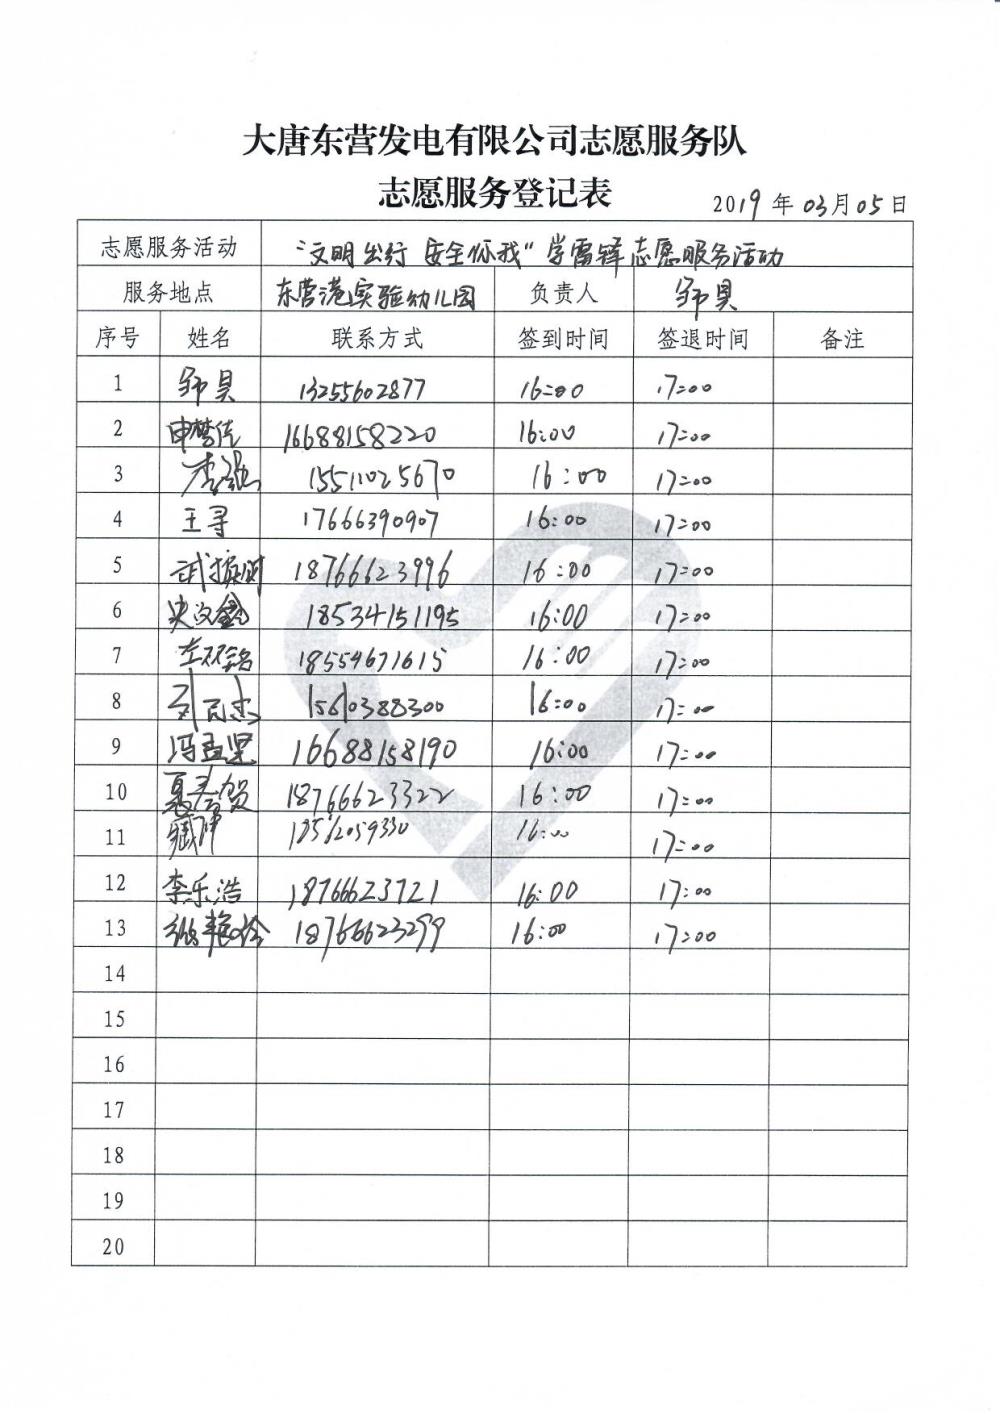 大唐东营发电有限公司志愿服务队
志愿服务登记表
2019年03月05日
志愿服务活动 "文明出行 安全你我"学雷锋志愿服务活动
服务地点 东营港实验幼儿园 负责人 邹昊
序号 姓名 联系方式 签到时间 签退时间 备注
1 邹昊 13255602877 16:00 17:00
2 申梦佳 16688158220 16:00 17:00
3 李强 15511025670 16:00 17:00
4 王寻 17666390907 16:00 17:00
5 武振时 18766623996 16:00 17:00
6 史汉鑫 18534151195 16:00 17:00
7 左双铭 18554671615 16:00 17:00
8 刘同杰 15610388300 16:00 17:00
9 冯孟坚 16688158190 16:00 17:00
10 夏春贺 18766623322 16:00 17:00
11 臧 18562059330 16:00 17:00
12 李乐浩 18766623721 16:00 17:00
13 张艳玲 18766623299 16:00 17:00
14
15
16
17
18
19
20